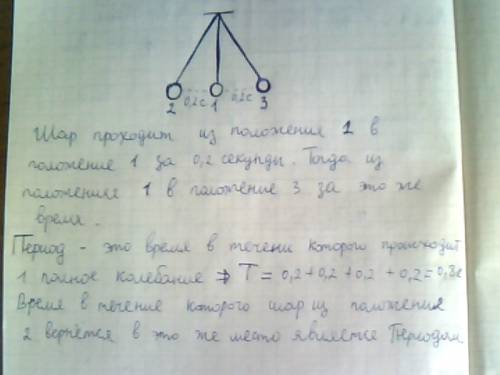 0,2с 0,2с
2 1 3
Шар проходит из положения 2 в
положение 1 за 0,2 секунды. Тогда из
положения 1 в положение 3 за это же
время.
Период - это время в течени которого происходит
1 полное колебание ⇒ T = 0,2+0,2+0,2+0,2=0,8с
Время в течение которого шар из положения
2 вернётся в это же место является Периодом